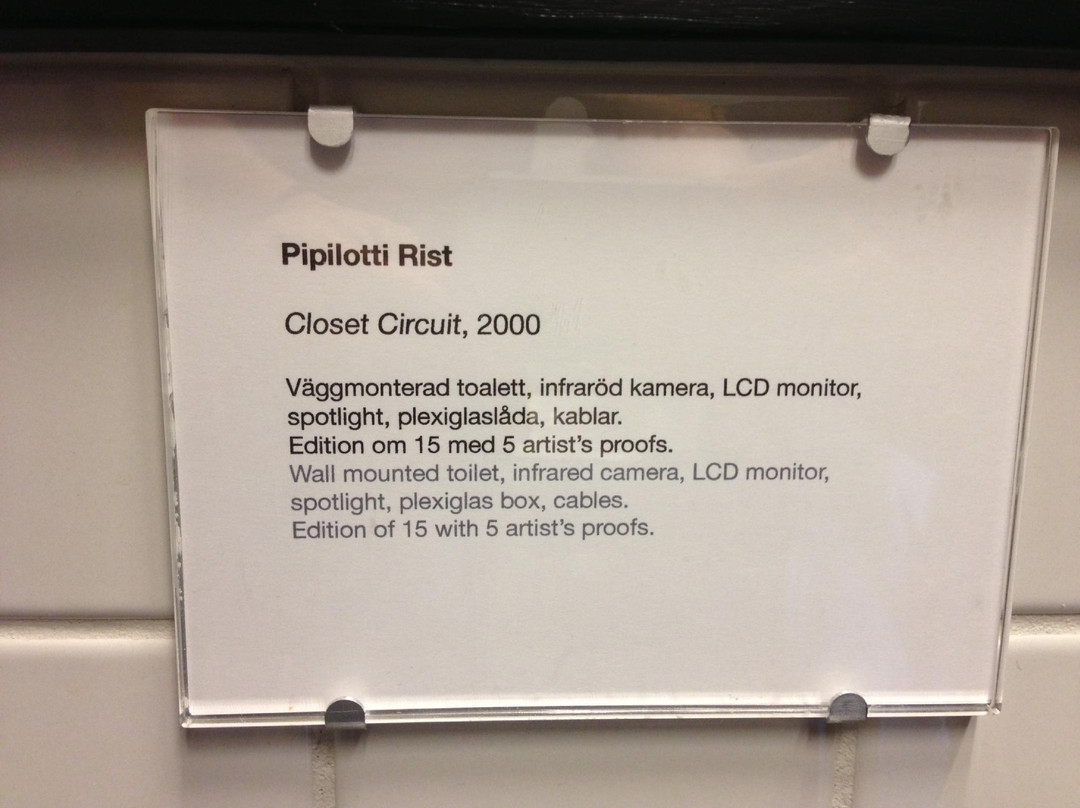 Pipilotti Rist
Closet Circuit, 2000
Väggmonterad toalett, infraröd kamera, LCD monitor,
spotlight, plexiglaslåda, kablar.
Edition om 15 med 5 artist’s proofs.
Wall mounted toilet, infrared camera, LCD monitor,
spotlight, plexiglas box, cables.
Edition of 15 with 5 artist’s proofs.